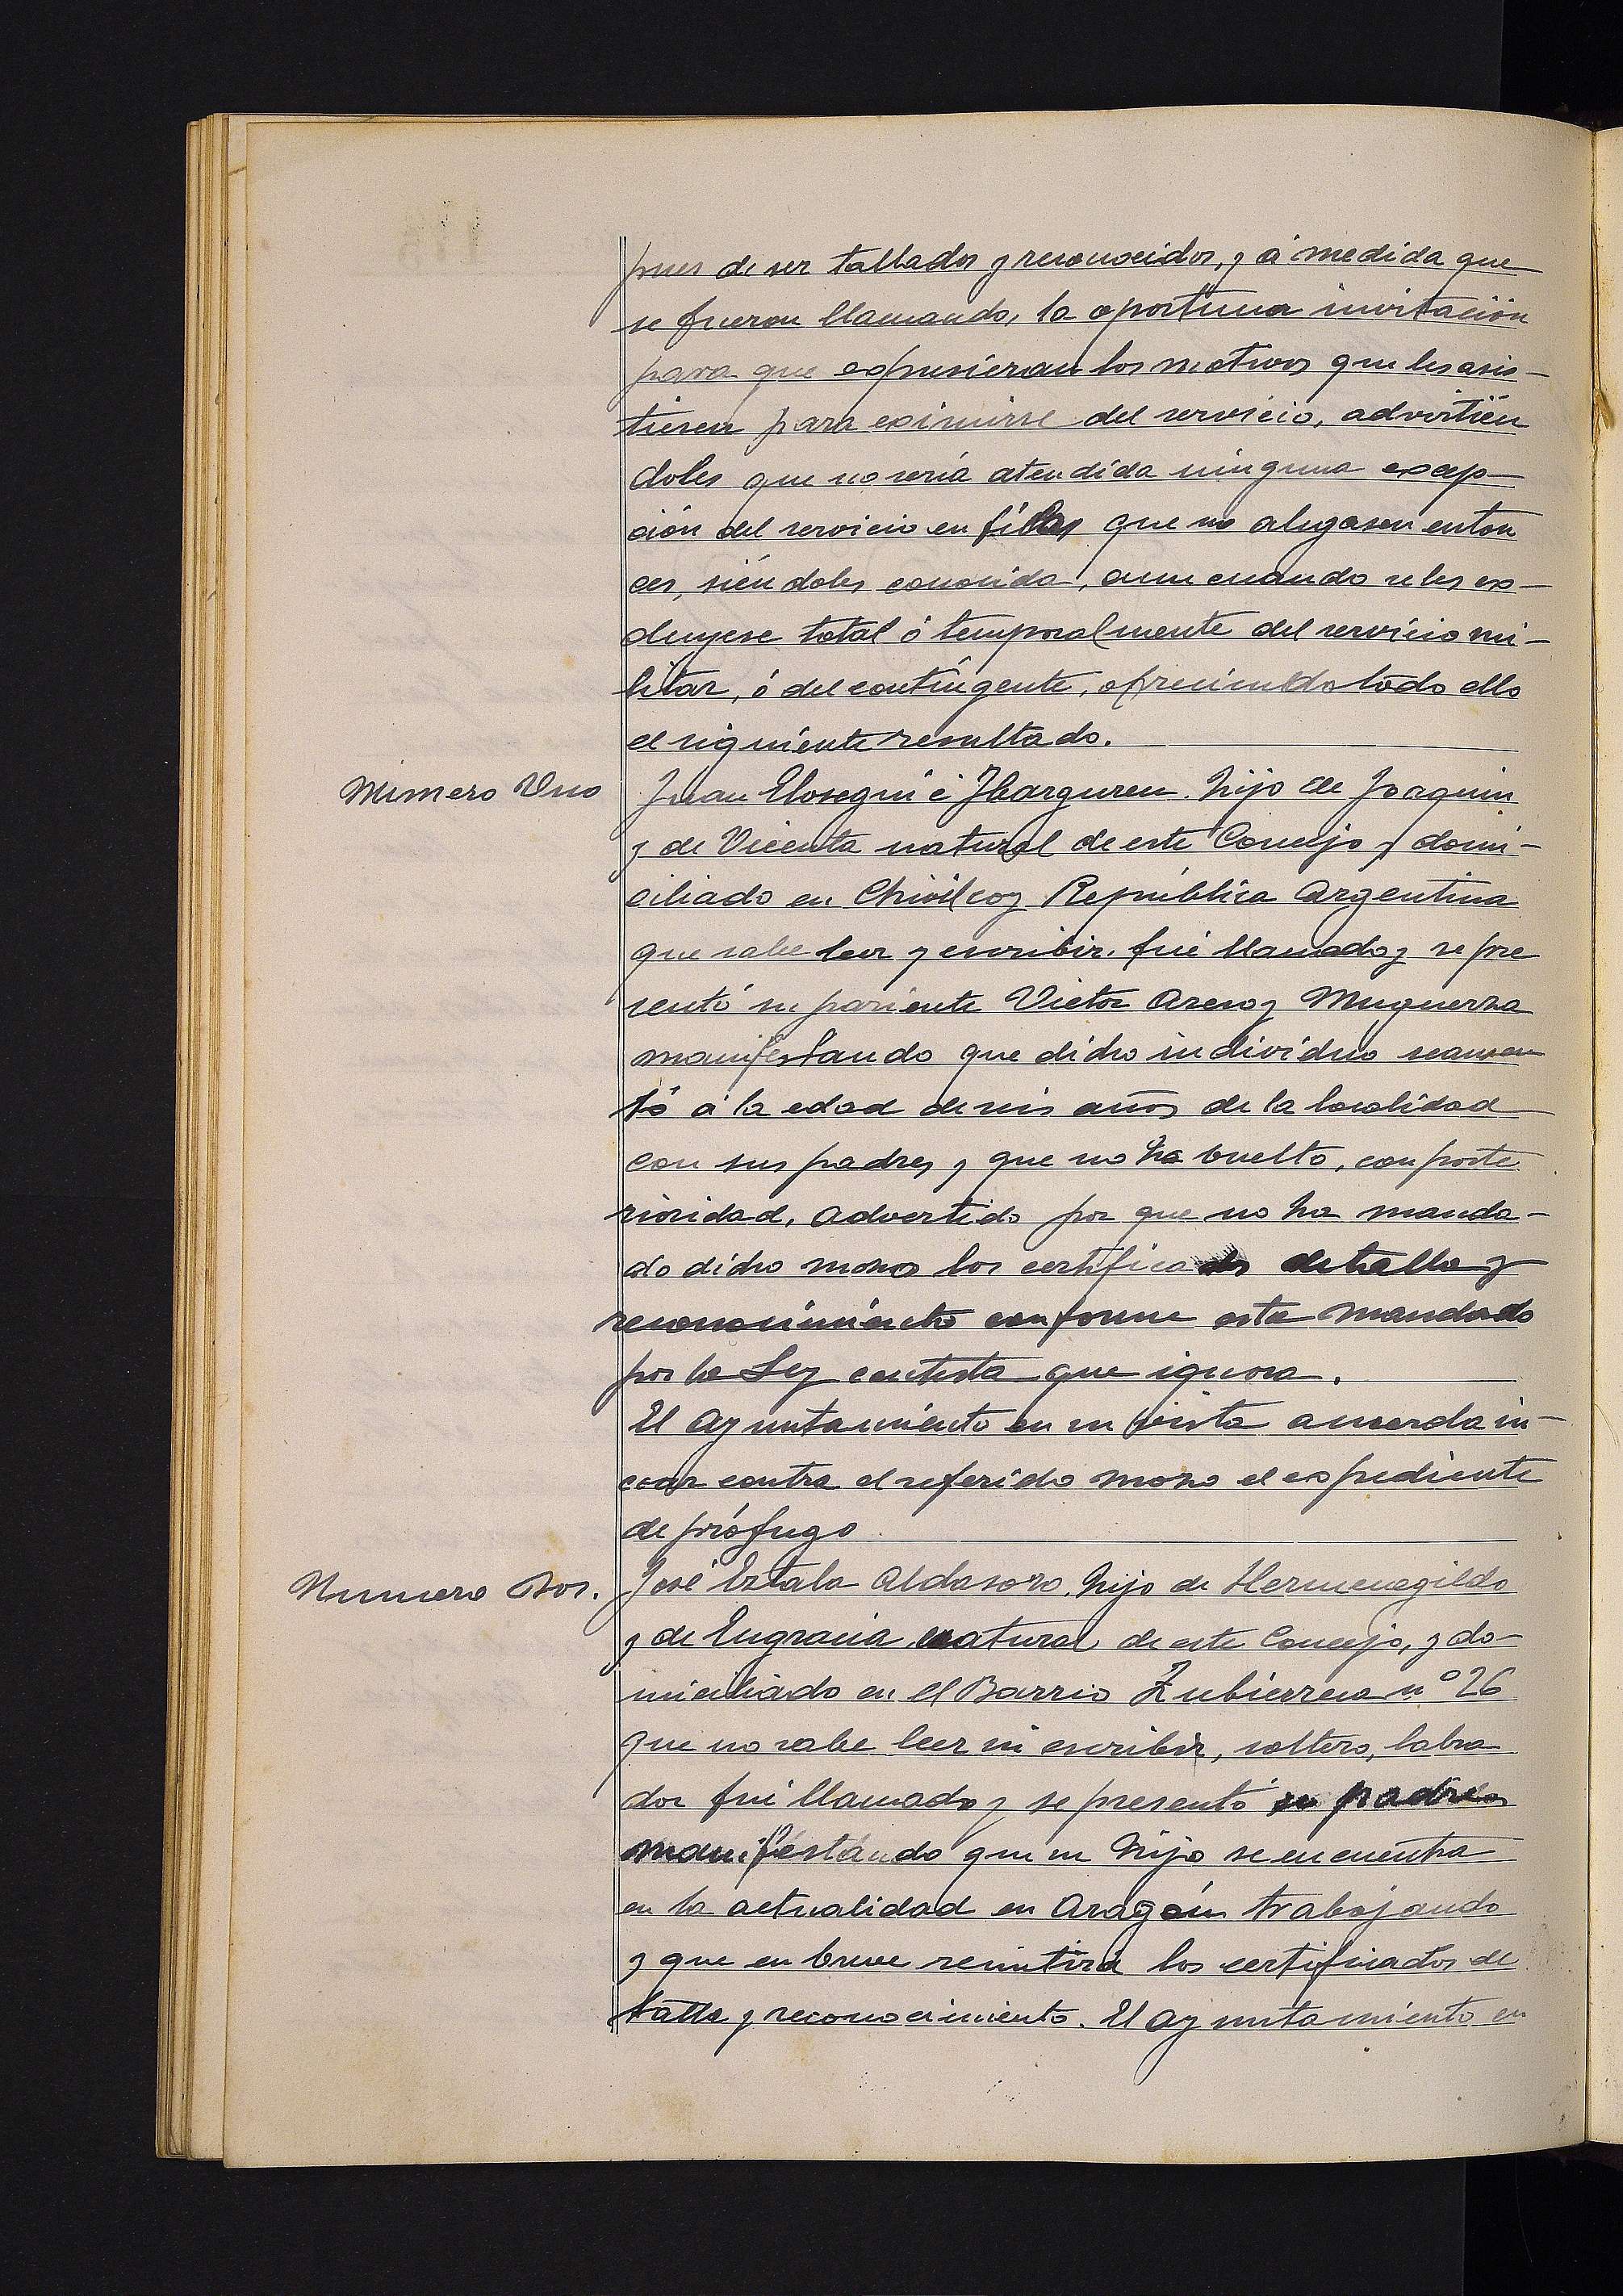 pues de ser tallados y reconocidos, y á medida que
se fueron llamando, la oportuna invitación
para que expusieran los motivos que les asis-
tiesen para eximirse del servicio, advirtién
doles que no sería atendida ninguna excep-
ción del servicio en filas que no alegasen enton
ces, siéndoles conocida, aun cuando se les ex-
cluyese total ó temporalmente del servicio mi-
litar, ó del contingente, ofreciendo todo ello
el siguiente resultado.
Número Uno
Juan Elosegui é Ibarguren. hijo de Joaquin
y de Vicenta natural de este Concejo y domi-
ciliado en Chivilcoy República Argentina
que sabe leer y escribir. fué llamado y se pre
sentó su pariente Victor Aseroz Muguerza
manifestando que dicho individuo se ausen
tó á la edad de seis años de la localidad
con sus padres y que no ha vuelto, con poste
rioridad. Advertido por que no ha manda-
do dicho mozo los certificados de talla y
reconocimiento conforme esta mandado
por la Ley contesta que ignora.
El Ayuntamiento en su vista acuerda in-
coar contra el referido mozo el expediente
de prófugo
Numero Dos.
José Aldasoro. hijo de Hermenegildo
y de Engracia, natural de este Concejo, y do-
miciliado en el Barrio Zubierreca nº 26
que no sabe leer ni escribir, soltero, labra
dor fué llamado y se presentó su padre
manifestando que su hijo se encuentra
en la actualidad en Aragón trabajando
y que en breve remitirá los certificados de
talla y reconocimiento. El Ayuntamiento en